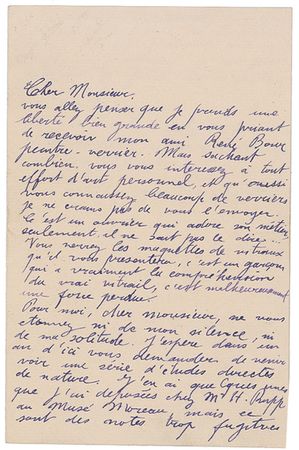 Cher Monsieur,
vous allez penser que je prends une
liberté bien grande en vous priant
de recevoir mon ami René
peintre-verrier. Mais sachant
combien vous vous intéressez à tout
effort d'art personnel, et qu'aussi
vous connaissez beaucoup de verriers
je ne crains pas de vous l'envoyer.
C'est un ouvrier qui adore son métier
seulement il ne sait pas le dire...
Vous verrez les maquettes de vitraux
qu'il vous présentera, c'est un garçon
qui a vraiment la compréhension
du vrai vitrail, c'est malheureusement
une force perdue.
Pour moi, cher monsieur, ne vous
étonnez ni de mon silence, ni
de ma solitude. J'espère dans un
an d'ici vous demander de venir
voir une série d'études directes
de nature. J'en ai que unes
que j'ai déposées chez Mr H. Rupp
au Musé Moreau mais ce
sont des notes trop fugitives